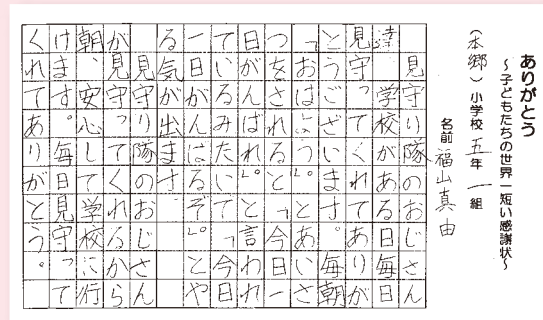 ありがとう
～子どもたちの世界一短い感謝状～
(本郷)小学校 五年 一組
名前 福山真由
見守り隊のおじさん
達 学校がある日毎日
見守ってくれてありが
とうございます。毎朝
「おはよう。」とあいさ
つをされると「今日一
日がんばれ。」と言われ
ているみたいで「今日
一日がんばるぞ。」とや
る気が出ます。
見守り隊のおじさん
が見守ってくれるから
朝、安心して学校に行
けます。毎日見守って
くれてありがとう。